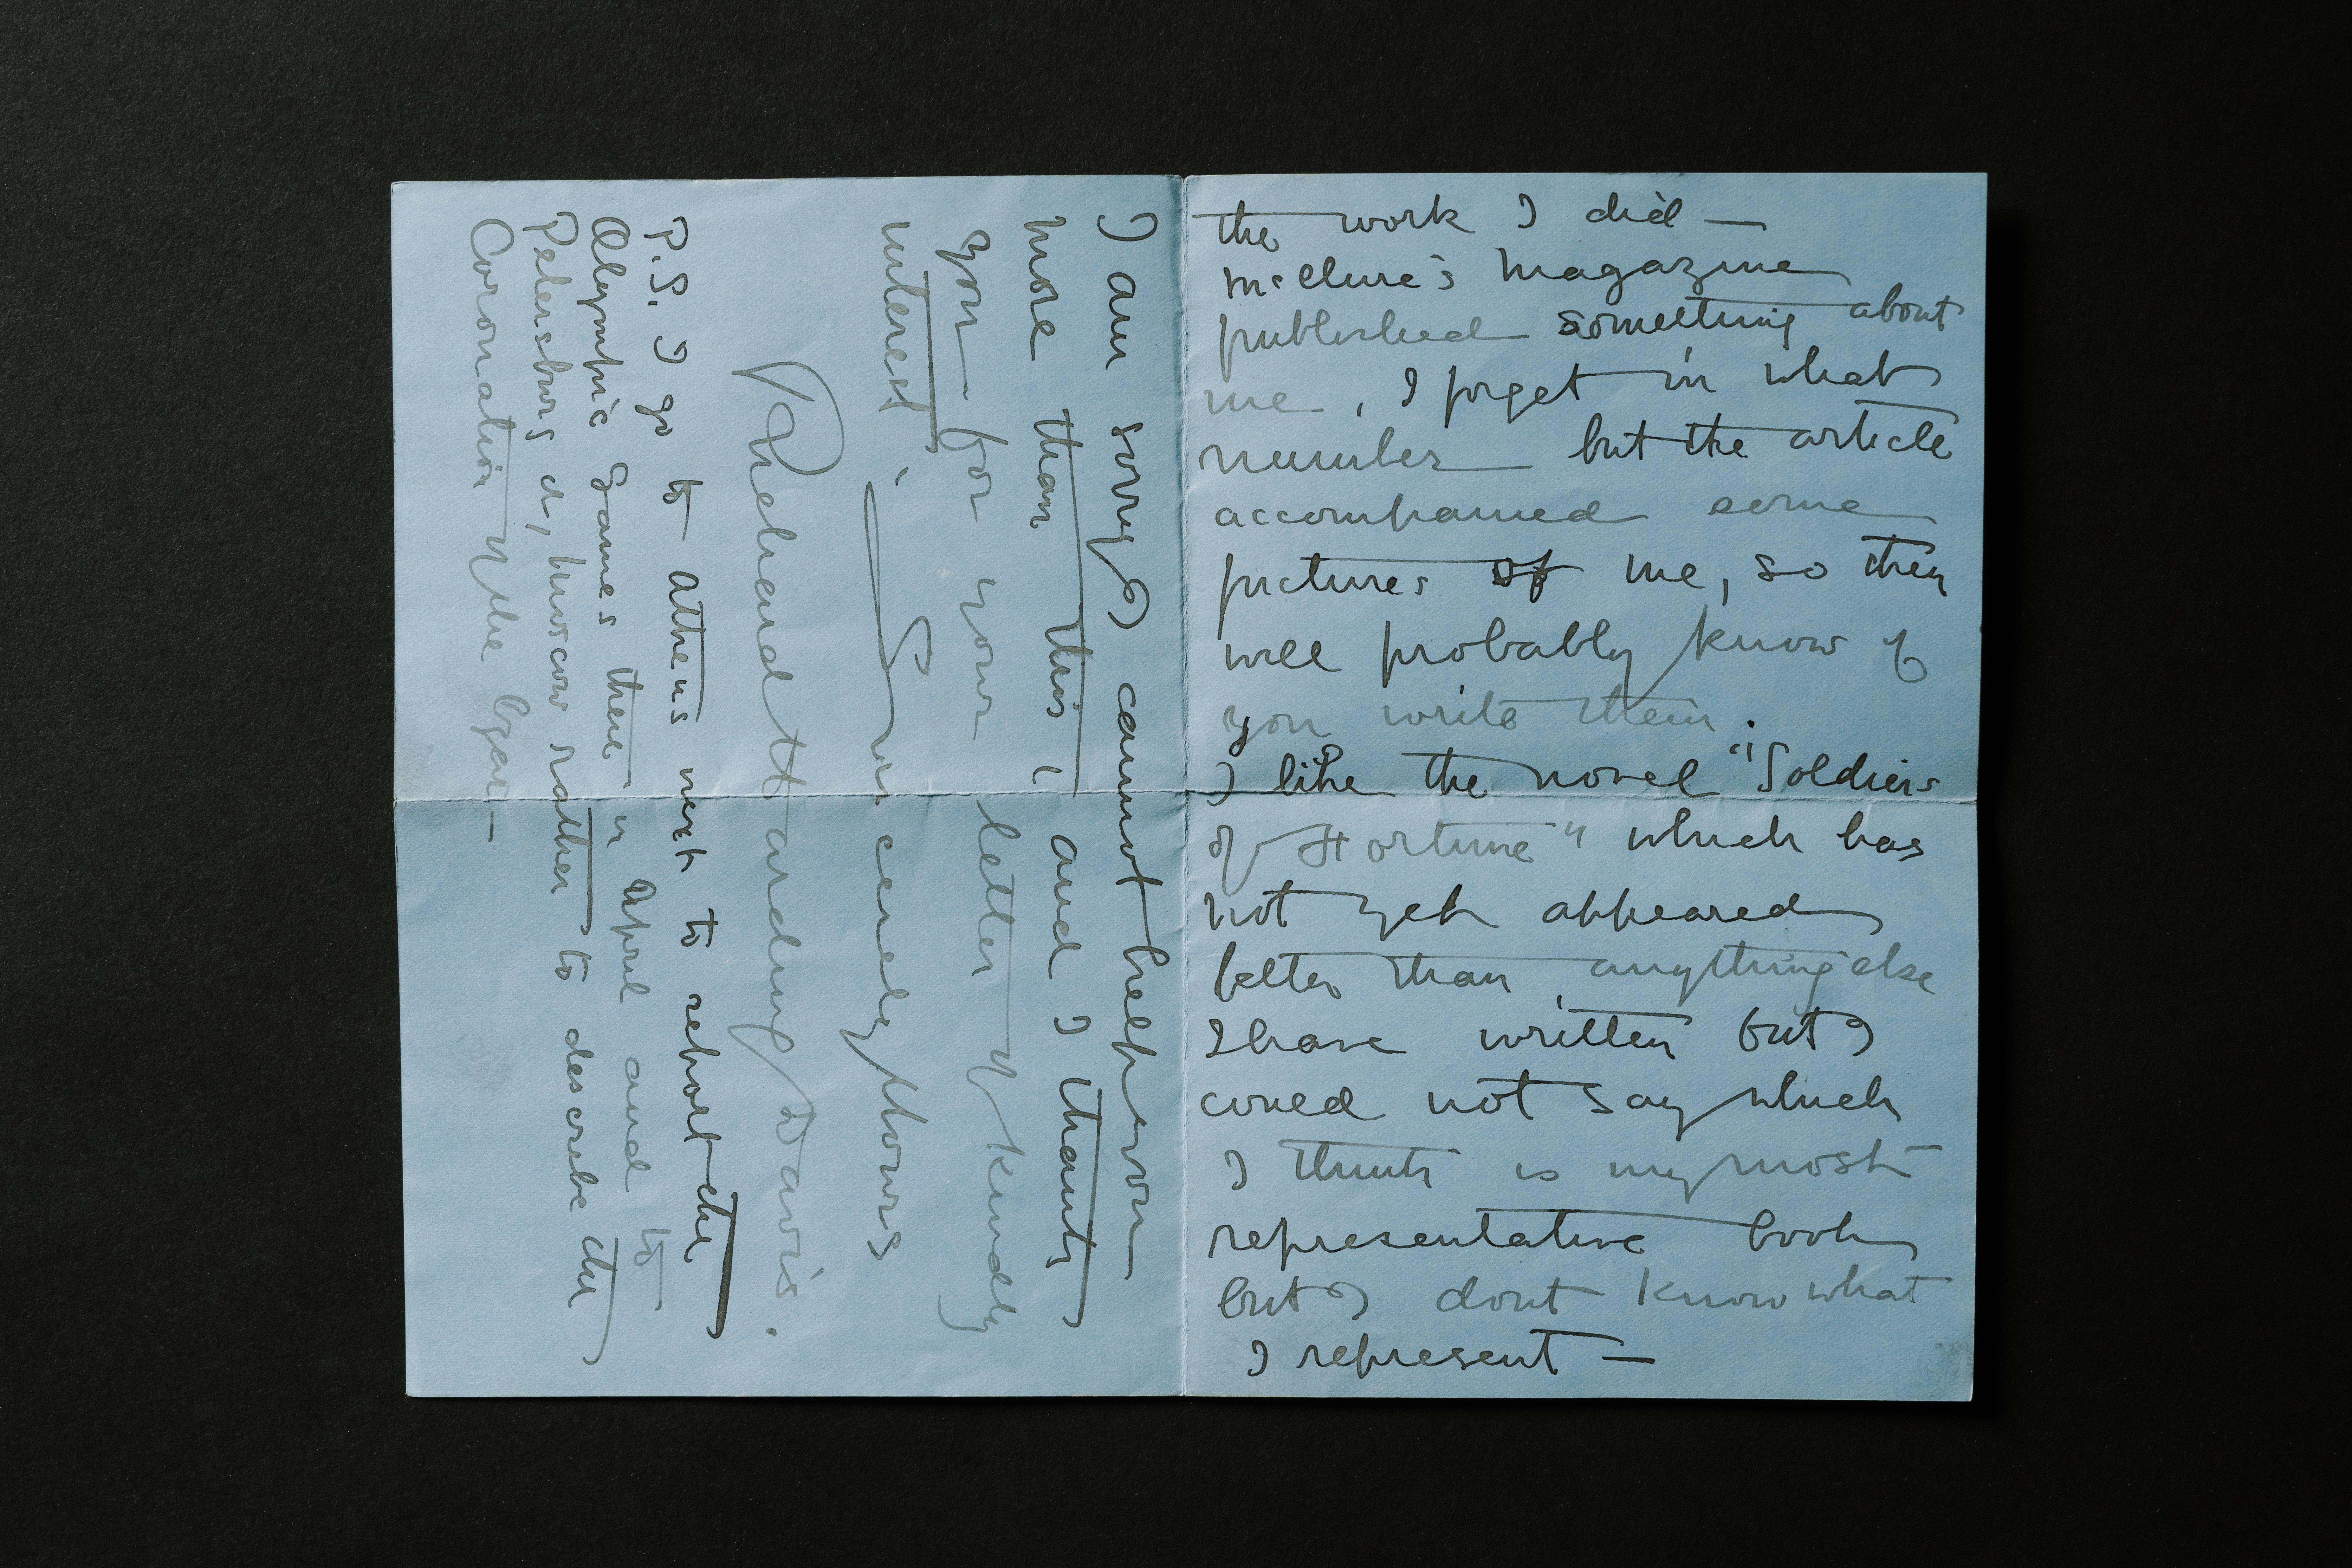 the work I did —
McClure's Magazine
published something about
me, I forget in what
number but the article
accompanied some
pictures of me, so they
will probably know if
you write them.
I like the novel "Soldiers
of Fortune" which has
not yet appeared
better than anything else
I have written but I
could not say which
I think is my most
representative book
but I dont know what
I represent —
I am sorry I cannot help you
more than this, and I thank
you for your letter of kindly
interest.
Sincerely Yours
Richard Harding Davis.
P.S. I go to Athens next to report the
Olympic Games there in April and to
Petersburg or, Moscow rather to describe the
Coronation of the Czar —